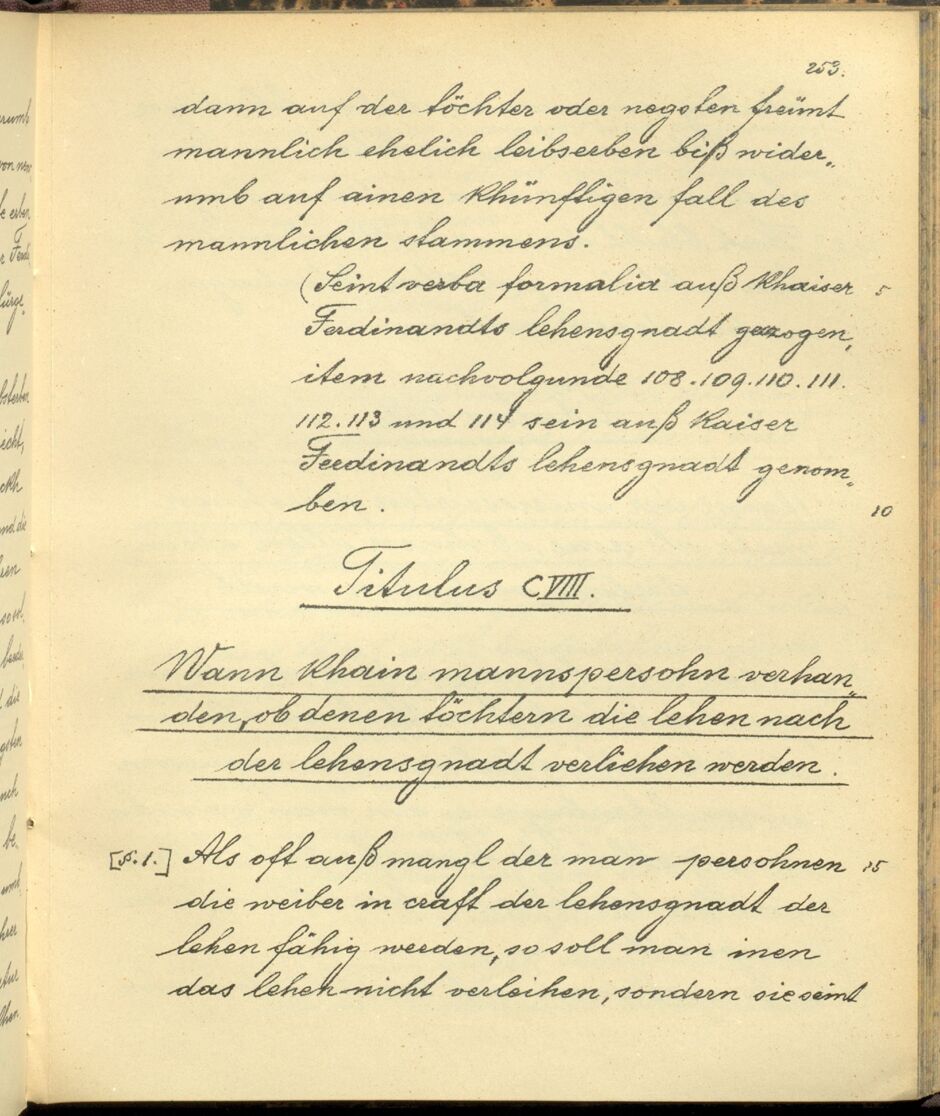 253.
dann auf der töchter oder negsten freünt
mannlich ehelich leibserben biß wider„
umb auf ainen khünfftigen fall des
mannlichen stammens.
(Seint verba formalia auß khaiser 5
Ferdinandts lehensgnadt gezogen,
item nachvolgunde 108.109.110.111.
112.113 und 114 sein auß kaiser
Ferdinandts lehensgnadt genom„
ben. 10
Titulus CVIII.
Wann khain mannspersohn verhan„
den, ob denen töchtern die lehen nach
der lehensgnadt verliehen werden.
[§.1.] Als oft auß mangl der man persohnen 15
die weiber in craft der lehensgnadt der
lehen fähig werden, so soll man inen
das lehen nicht verleihen, sondern sie seint